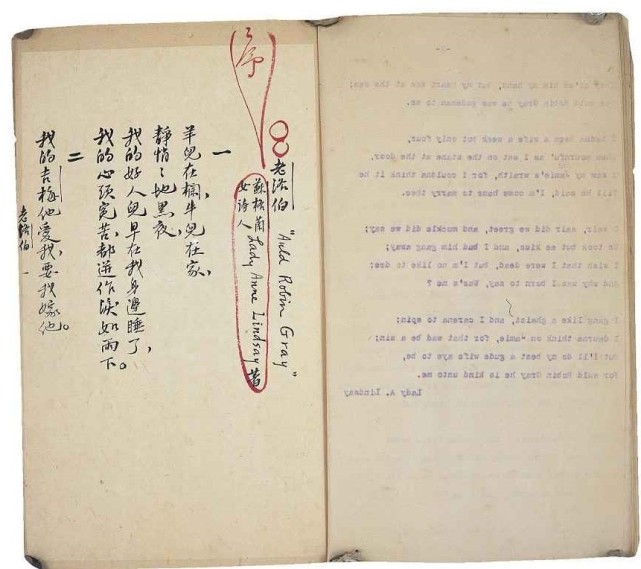 序
老洛伯 "Auld Robin Gray"
蘇格蘭
女詩人 Lady Anne Lindsay 著
一
羊兒在欄,牛兒在家,
靜悄〻地黑夜,
我的好人兒早在我身邊睡了,
我的心頭冤苦,都迸作淚如雨下。
二
我的吉梅他愛我,要我嫁他。
老洛伯 一
gi'ed him my hand, but my heart was at the sea;
auld Robin Gray he was gudeman to me.
I hadna been a wife a week but only four,
When mournfu' as I sat on the stane at the door,
I saw my Jamie's wraith, for I couldna think it he
Till he said, I'm come hame to marry thee.
O sair, sair did we greet, and muckle did we say;
We took but ae kiss, and I bad him gang away;
I wish that I were dead, but I'm no like to dee;
And why was I born to say, Wae's me ?
I gang like a ghaist, and I carena to spin;
I daurna think on Jamie, for that wad be a sin;
But I'll do my best a gude wife aye to be,
For auld Robin Gray he is kind unto me.
Lady A. Lindsay